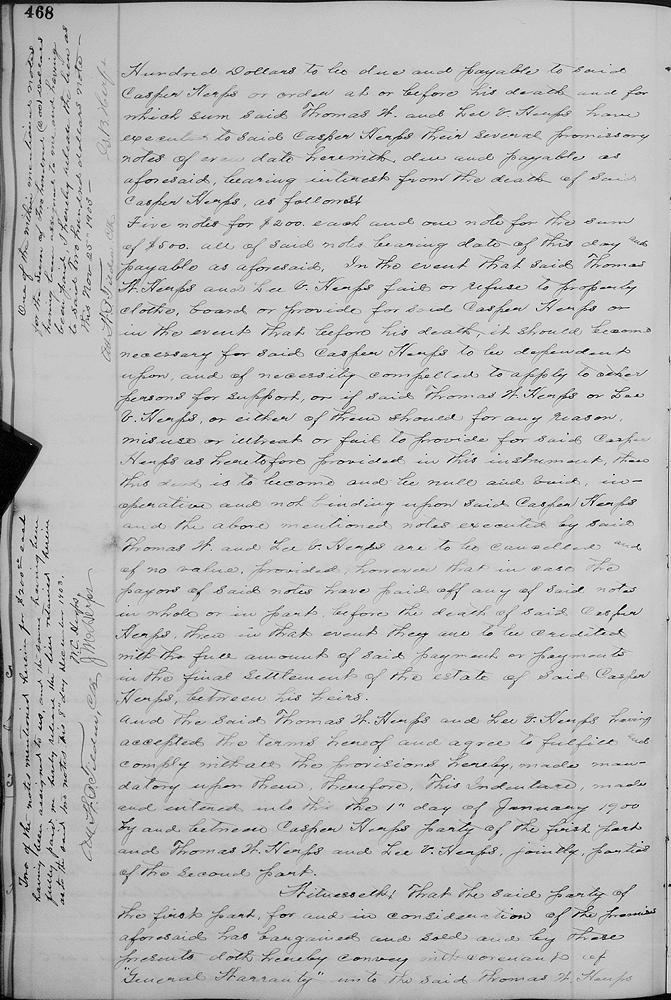 468
Hundred Dollars to be due and payable to said
Casper Herps or order at or before his death and for
which sum said Thomas H. and Lee V. Herps have
executed to said Casper Herps their several promissory
notes of even date herewith, due and payable as
aforesaid, bearing interest from the death of said
Casper Herps, as follows:
Five notes for $200. each and one note for the sum
of $500. all of said notes bearing date of this day and
payable as aforesaid. In the event that said Thomas
H. Herps and Lee V. Herps fail or refuse to properly
clothe, board or provide for said Casper Herps or
in the event that before his death, it should become
necessary for said Casper Herps to be dependent
upon, and of necessity compelled to apply to other
persons for support, or if said Thomas H. Herps or Lee
V. Herps, or either of them should for any reason,
misuse or illtreat or fail to provide for said Casper
Herps as heretofore provided in this instrument, then
this deed is to become and be null and void, in-
operative and not binding upon said Casper Herps
and the above mentioned notes executed by said
Thomas H. and Lee V. Herps are to be cancelled and
of no value, provided, however that in case the
payors of said notes have paid off any of said notes
in whole or in part, before the death of said Casper
Herps, then in that event they are to be credited
with the full amount of said payment or payments
in the final settlement of the estate of said Casper
Herps, between his heirs.
And the said Thomas H. Herps and Lee V. Herps having
accepted the terms hereof and agree to fulfill and
comply with all the provisions hereby, made man-
datory upon them, therefore, This Indenture, made
and entered into this the 1st day of January 1900
by and between Casper Herps party of the first part
and Thomas H. Herps and Lee V. Herps, jointly, parties
of the second part.
Witnesseth; That the said party of
the first part, for and in consideration of the premises
aforesaid has bargained and sold and by these
presents doth hereby convey with covenant of
"General Warranty" unto the said Thomas H. Herps
One of the within mentioned notes
for the sum of Two hundred (200) dollars
having been assigned to me and having
been paid, I hereby release the lien as
to said Two hundred dollars note-
this Nov 25th 1903-
Two of the notes mentioned herein for $200.00 each
having been assigned to us, and the same having been
fully paid we hereby release the lien retained herein
as to the said two notes this 8th day December 1903.
V.C. Herps